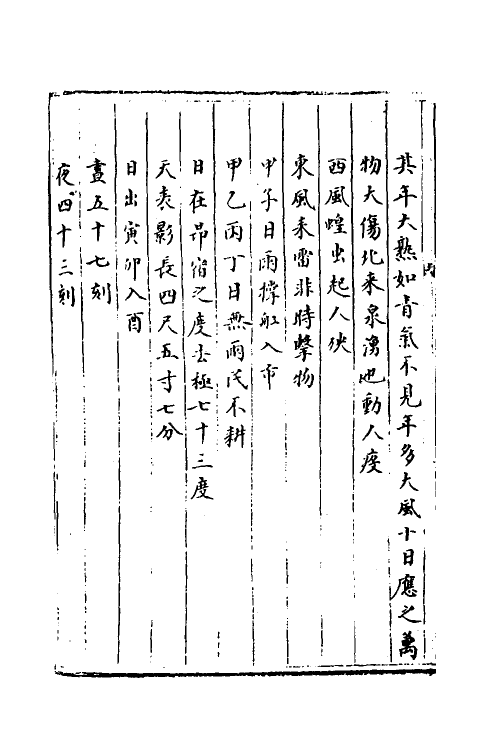 其年大熟如青氣不見年多大風十日應之萬
物大傷北来泉湧地動人疫
西風蝗虫起人殃
東風来雷非時擊物
甲子日雨撑舡入市
甲乙丙丁日無雨民不耕
日在昴宿之度去極七十三度
天表影長四尺五寸七分
日出寅卯入酉
晝五十七刻
夜四十三刻